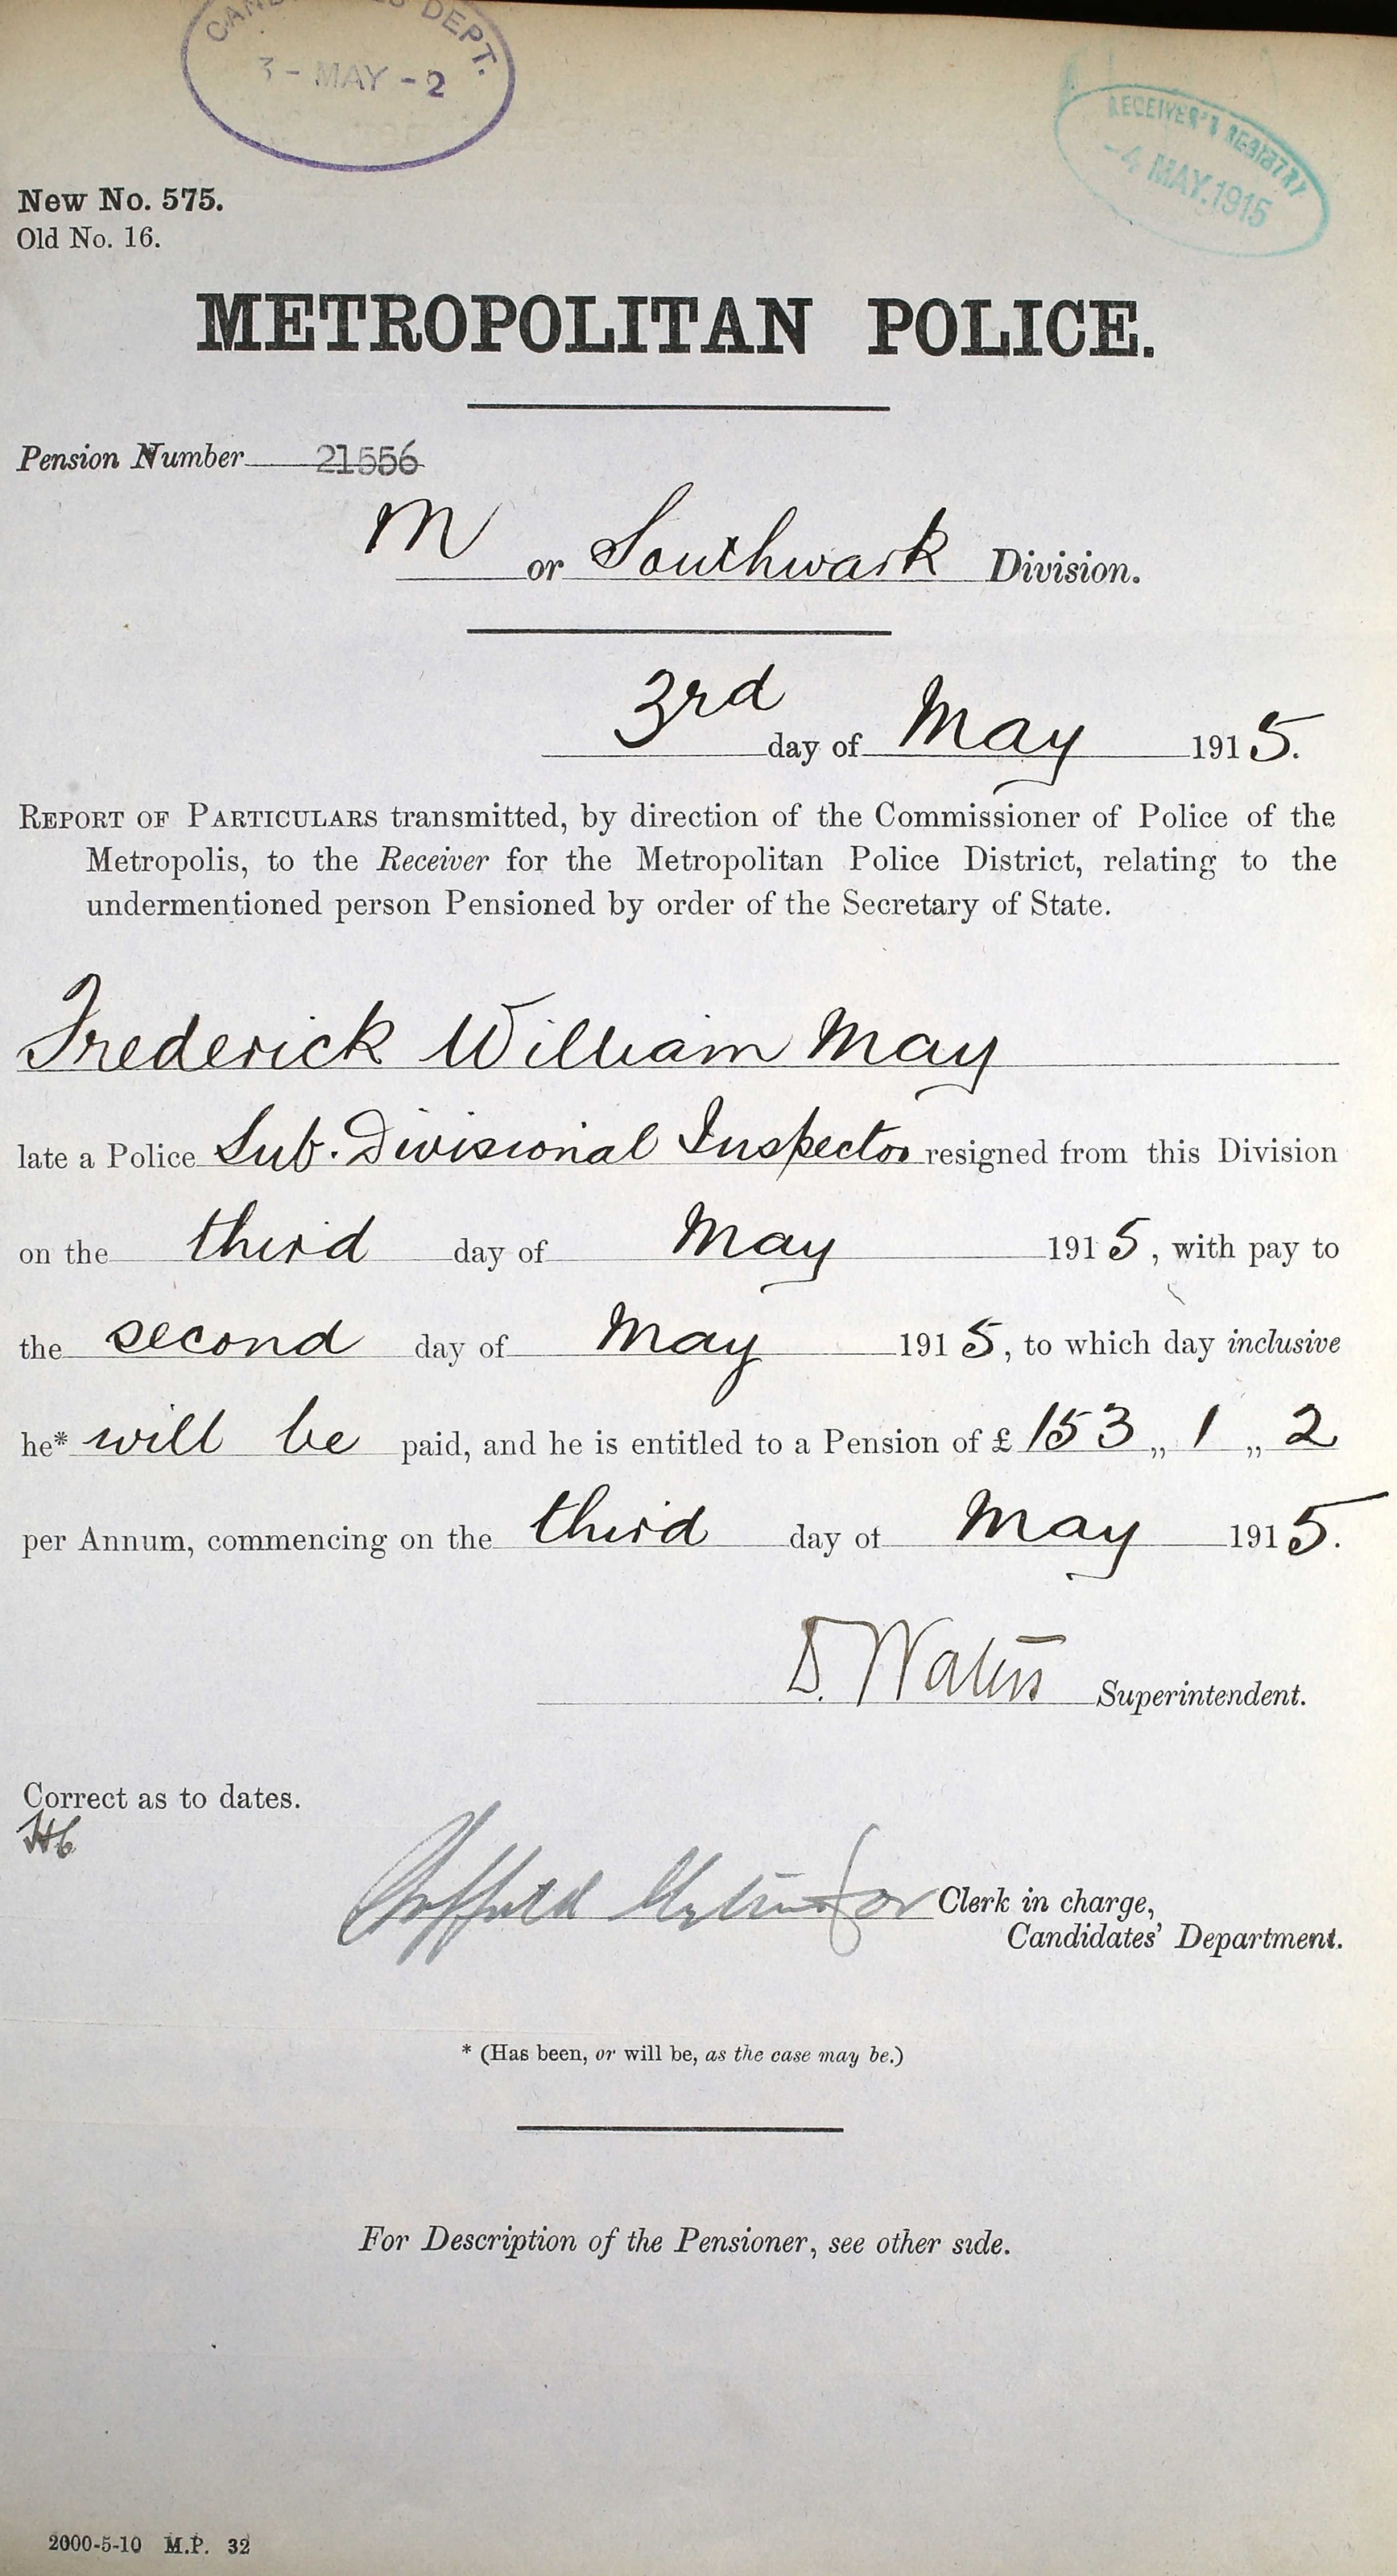 DEPT.
3 - MAY - 2
RECEIVER'S REGISTRY
-4 MAY.1915
New No. 575.
Old No. 16.
METROPOLITAN POLICE.
Pension Number 21556
M or Southwark Division.
3rd day of May 1915.
REPORT OF PARTICULARS transmitted, by direction of the Commissioner of Police of the
Metropolis, to the Receiver for the Metropolitan Police District, relating to the
undermentioned person Pensioned by order of the Secretary of State.
Frederick William May
late a Police Sub. Divisional Inspector resigned from this Division
on the third day of May 1915, with pay to
the second day of May 1915, to which day inclusive
he* will be paid, and he is entitled to a Pension of £ 153 „ 1 „ 2
per Annum, commencing on the third day of May 1915.
D. Waters Superintendent.
Correct as to dates.
for Clerk in charge,
Candidates' Department.
* (Has been, or will be, as the case may be.)
For Description of the Pensioner, see other side.
2000-5-10 M.P. 32